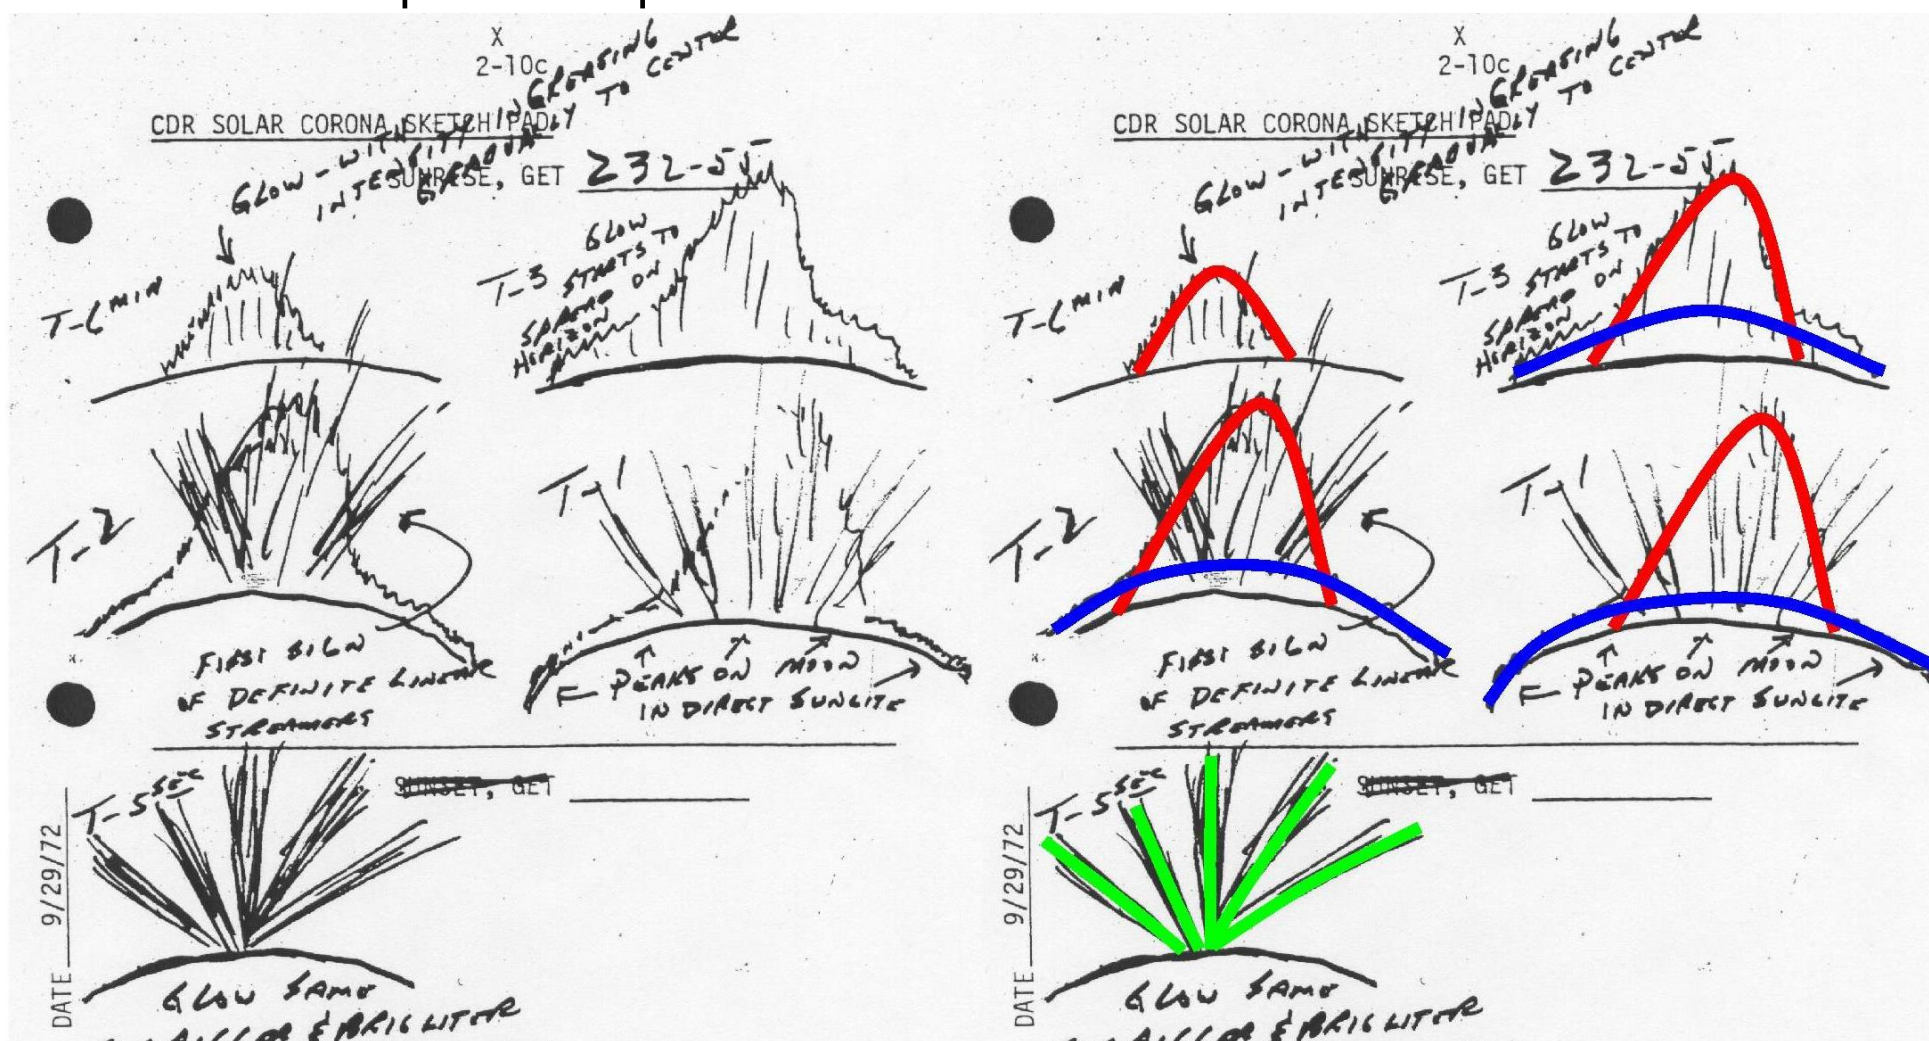 X
2-10c
CDR SOLAR CORONA SKETCH PAD
SUNRISE, GET 232-55
GLOW - WITH INCREASING
INTENSITY
GRADUALLY TO CENTER
T-6 MIN
T-3
GLOW
STARTS TO
SPREAD ON
HORIZON
T-2
FIRST SIGN
OF DEFINITE LINEAR
STREAMERS
T-1
PEAKS ON MOON
IN DIRECT SUNLITE
T-5 SEC
SUNSET, GET
DATE 9/29/72
GLOW SAME
BIGGER & BRIGHTER
X
2-10c
CDR SOLAR CORONA SKETCH PAD
SUNRISE, GET 232-55
GLOW - WITH INCREASING
INTENSITY
GRADUALLY TO CENTER
T-6 MIN
T-3
GLOW
STARTS TO
SPREAD ON
HORIZON
T-2
FIRST SIGN
OF DEFINITE LINEAR
STREAMERS
T-1
PEAKS ON MOON
IN DIRECT SUNLITE
T-5 SEC
SUNSET, GET
DATE 9/29/72
GLOW SAME
BIGGER & BRIGHTER